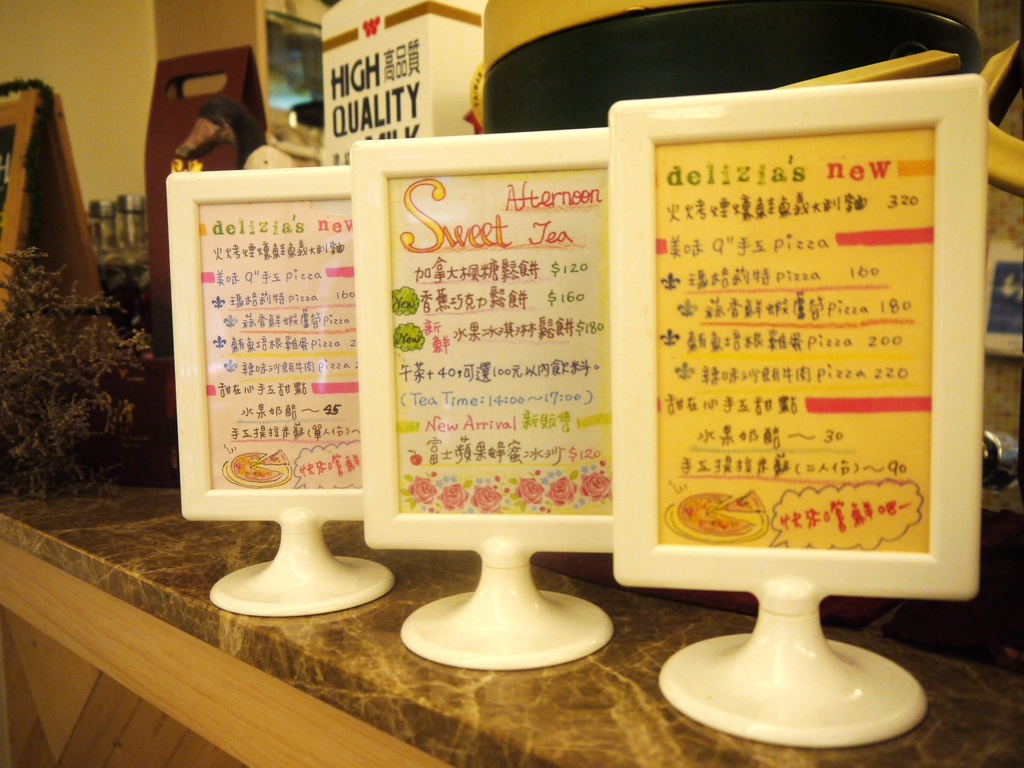 HIGH 高品質
QUALITY
MILK
delizia's new
火烤煙燻鮭魚義大利麵
美味 9"手工 pizza
瑪格莉特 pizza 160
蒜香鮮蝦蘆筍 pizza
鮪魚培根雞蛋 pizza 2
辣味沙朗牛肉 pizza
甜在心手工甜點
水果奶酪～
手工提拉米蘇(單人份)～
快來嚐鮮
Sweet Afternoon
Tea
加拿大楓糖鬆餅 $120
New! 香蕉巧克力鬆餅 $160
New! 新鮮 水果冰淇淋鬆餅 $180
午茶+40,可選100元以內飲料。
(Tea Time: 14:00～17:00)
New Arrival 新販售
富士蘋果蜂蜜冰沙 $120
delizia's new
火烤煙燻鮭魚義大利麵 320
美味 9"手工 pizza
瑪格莉特 pizza 160
蒜香鮮蝦蘆筍 pizza 180
鮪魚培根雞蛋 pizza 200
辣味沙朗牛肉 pizza 220
甜在心手工甜點
水果奶酪～30
手工提拉米蘇(二人份)～90
快來嚐鮮吧～